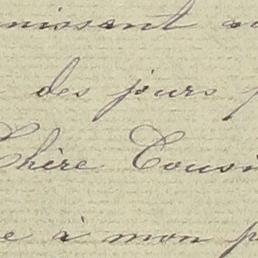 nissent
des jours
Chère Cousi
e à mon p